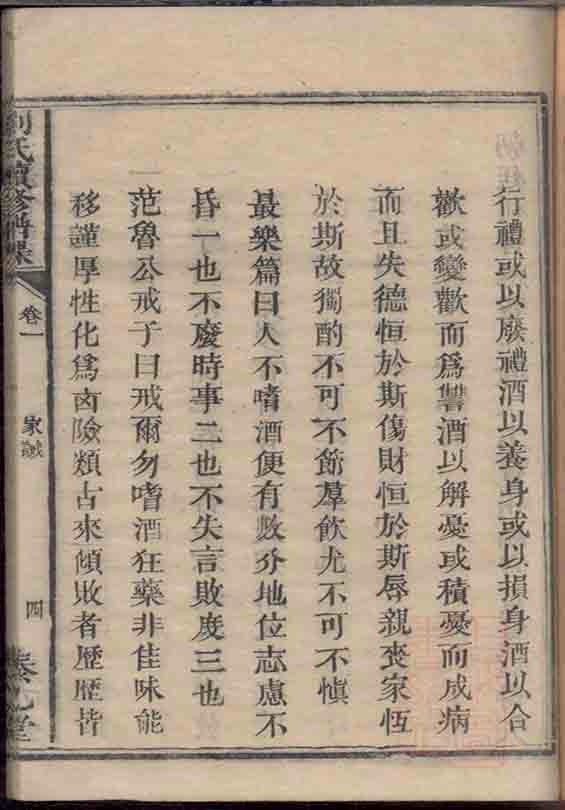 行禮或以廢禮酒以養身或以損身酒以合
歡或變歡而爲讐酒以解憂或積憂而成病
而且失德恒於斯傷財恒於斯辱親喪家恆
於斯故獨酌不可不節羣飲尤不可不慎
最樂篇曰人不嗜酒便有數分地位志慮不
昏一也不廢時事二也不失言敗度三也
范魯公戒子曰戒爾勿嗜酒狂藥非佳味能
移謹厚性化爲凶險類古來傾敗者歷歷皆
氏續修譜
卷一
家誡
四
堂